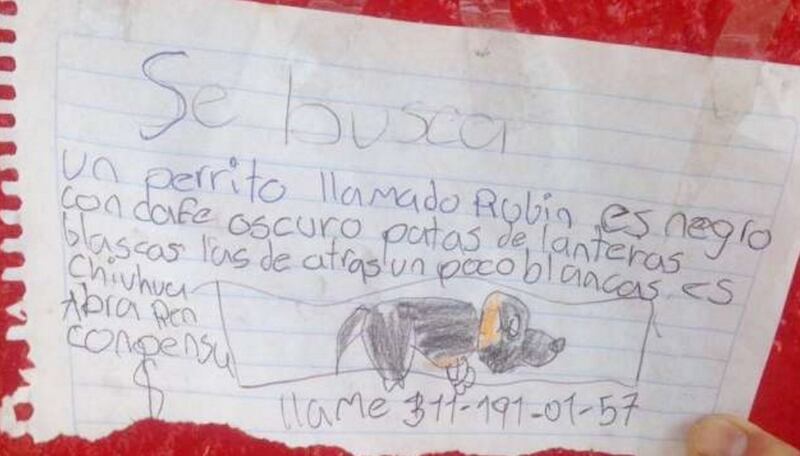 Se busca
un perrito llamado Robin es negro
con cafe oscuro patas de lanteras
blascas las de atras un poco blancas es
chiuhua
Abra Ren
conpensu
$
llame 311-191-01-57